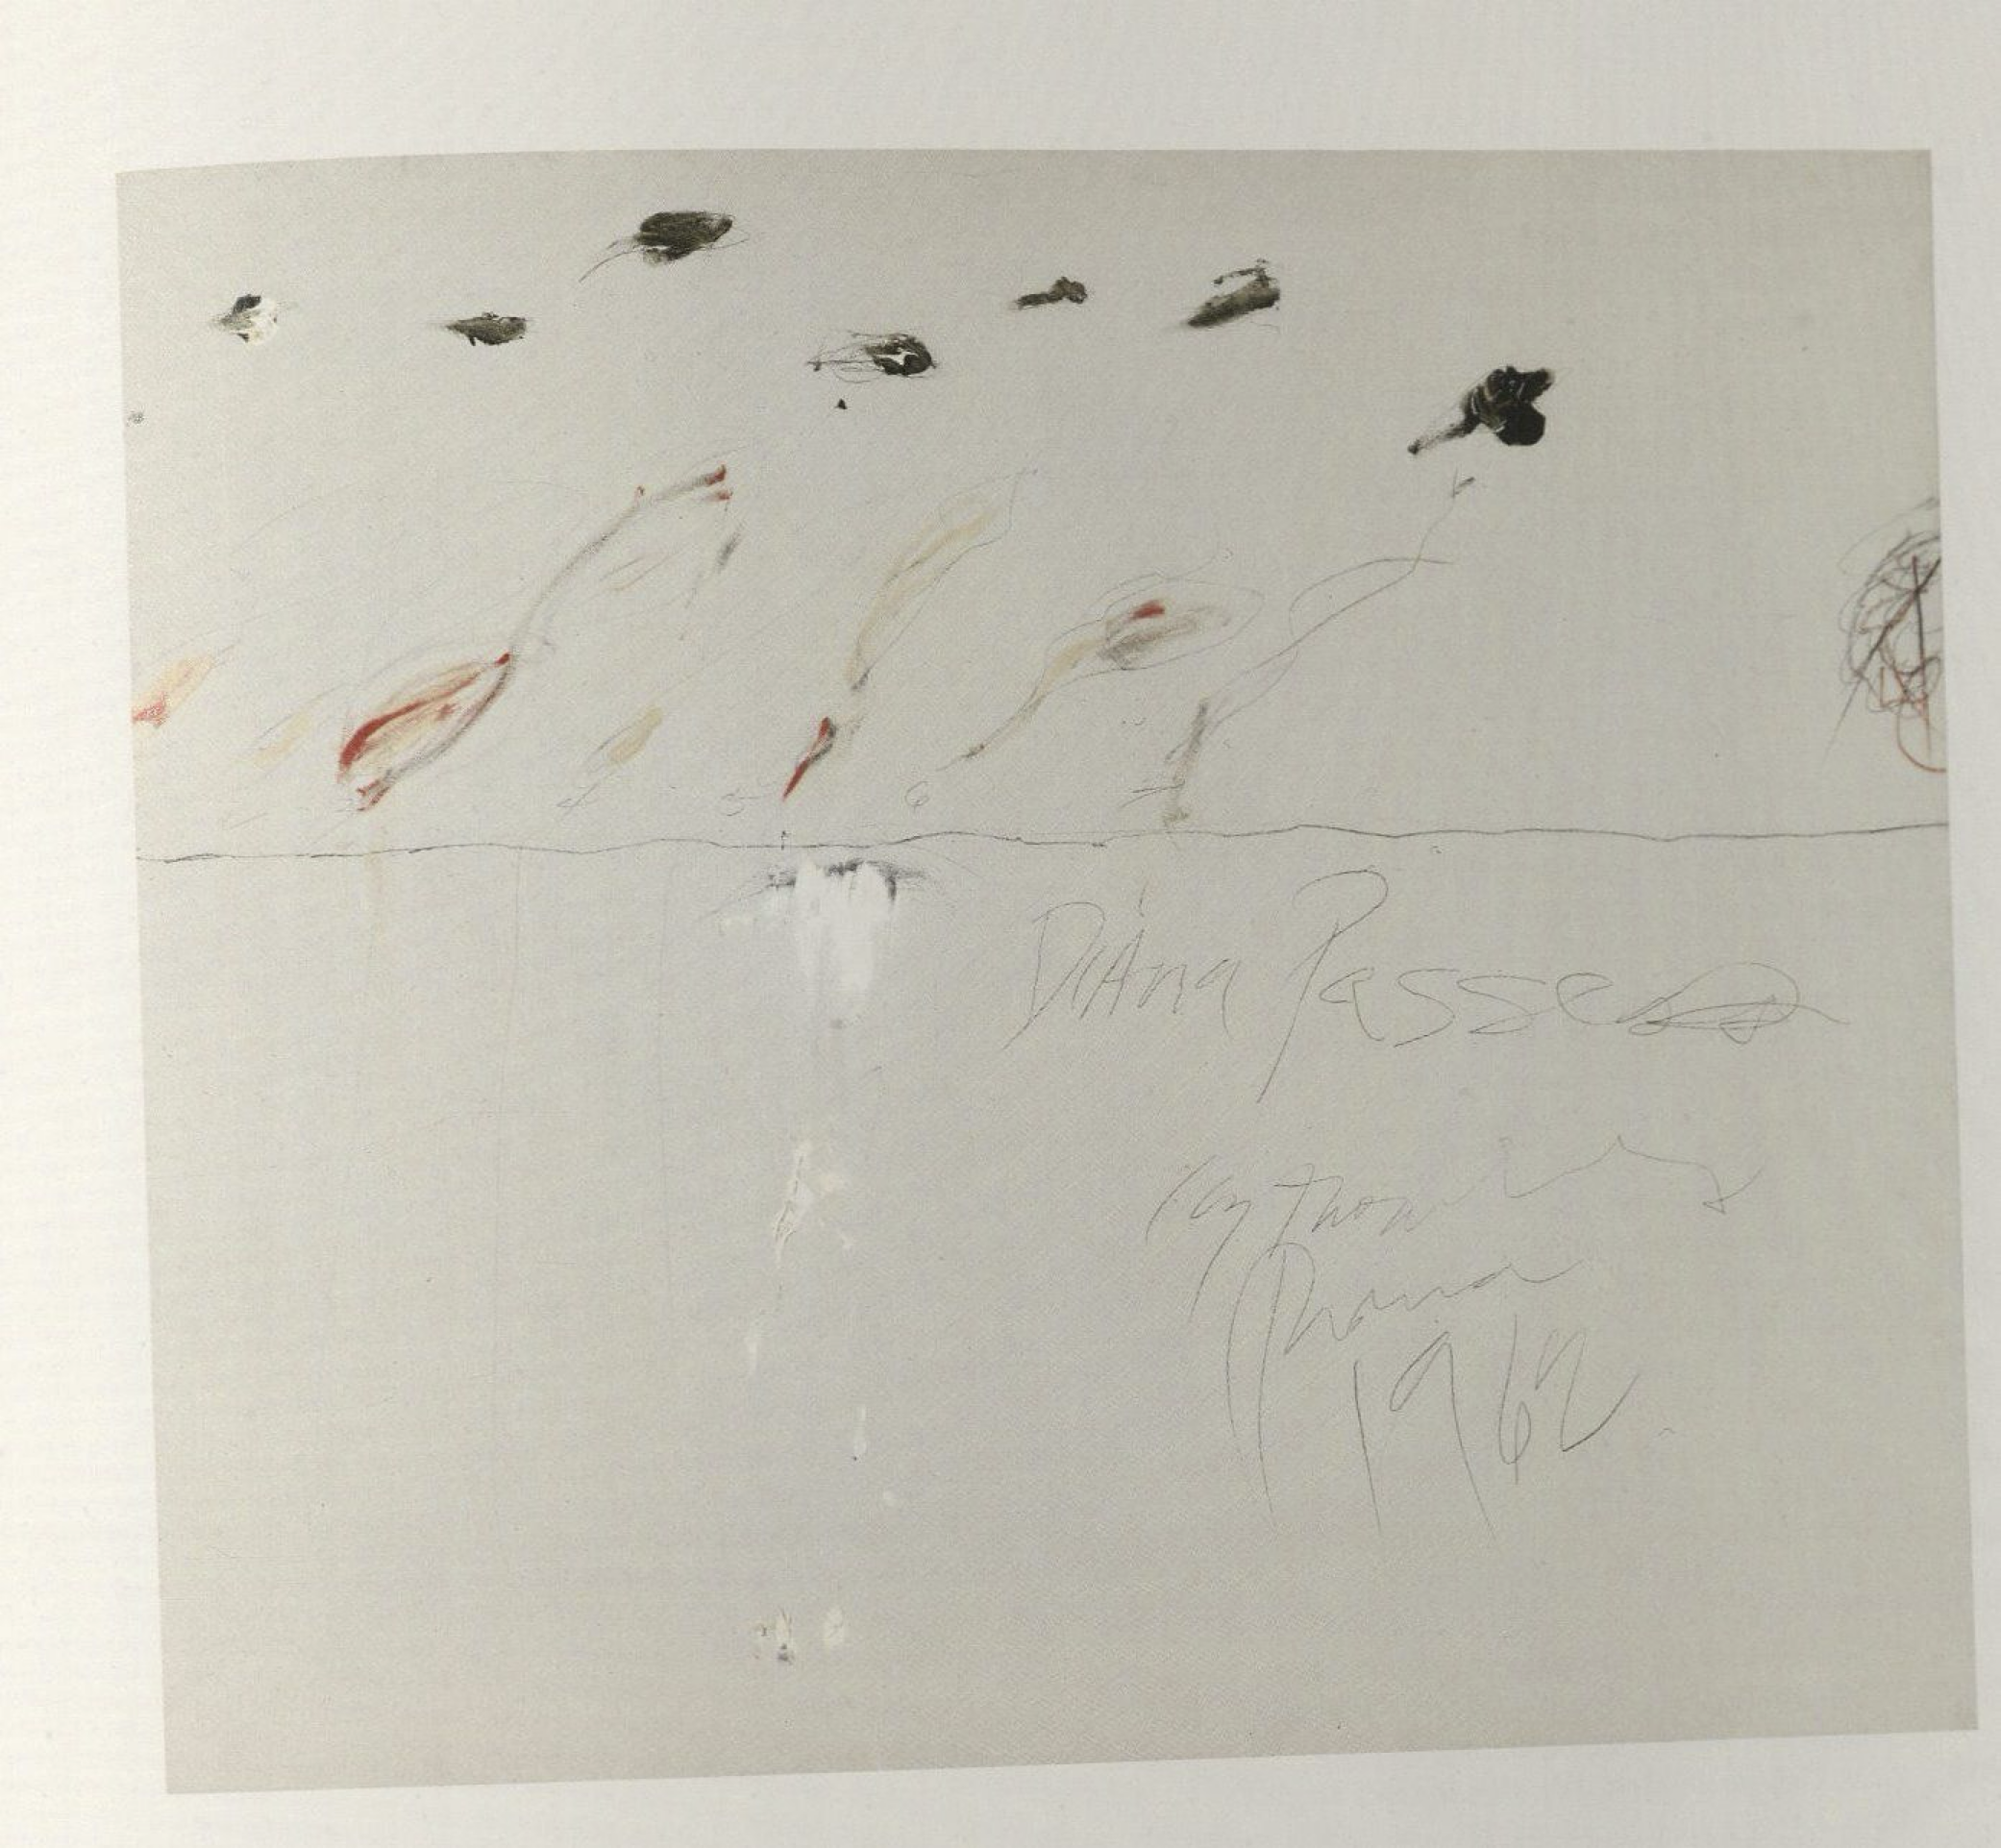 2 4 5 6 7
Diana Passes
Cy Twombly
Roma
1962